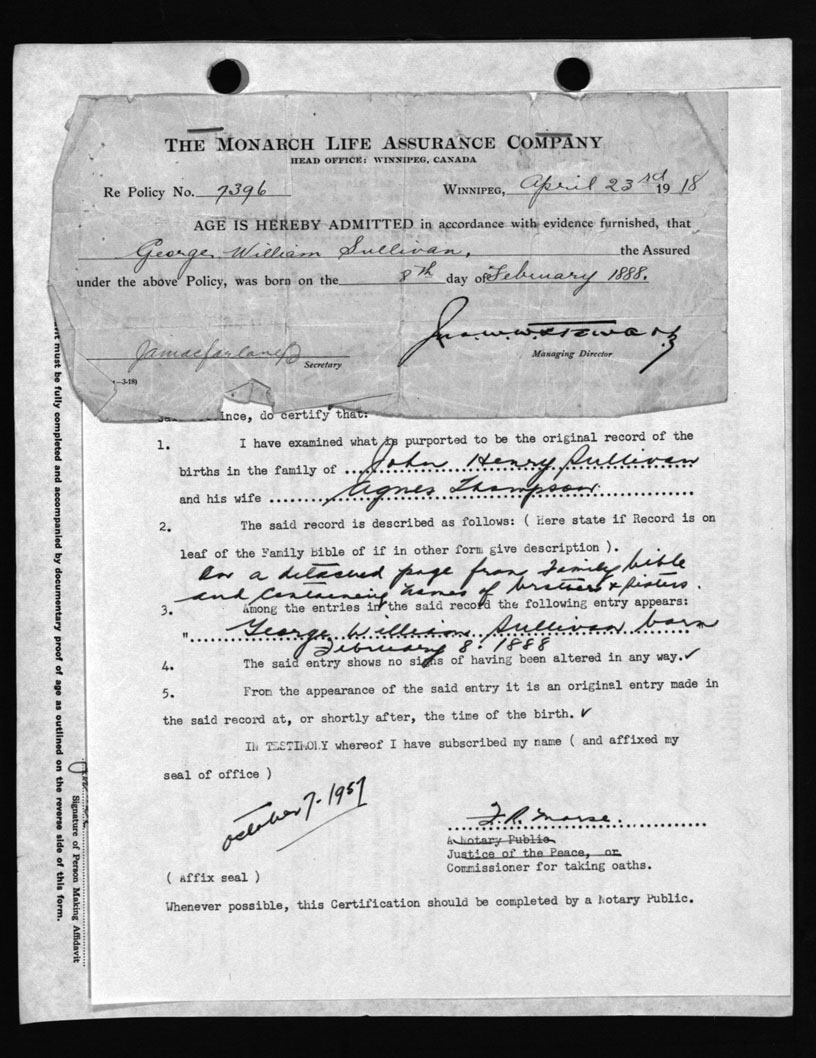 THE MONARCH LIFE ASSURANCE COMPANY
HEAD OFFICE: WINNIPEG, CANADA
Re Policy No. 7396 WINNIPEG, April 23rd 1918
AGE IS HEREBY ADMITTED in accordance with evidence furnished, that
George William Sullivan, the Assured
under the above Policy, was born on the 8th day of February 1888.
Secretary
Managing Director
-3-18)
ince, do certify that:
1. I have examined what is purported to be the original record of the
births in the family of John Henry Sullivan
and his wife Agnes Thompson
2. The said record is described as follows: ( Here state if Record is on
leaf of the Family Bible of if in other form given description ).
On a detached page from Family bible
and containing names of brothers & sisters.
3. Among the entries in the said record the following entry appears:
" George William Sullivan born
February 8. 1888
4. The said entry shows no signs of having been altered in any way. ✓
5. From the appearance of the said entry it is an original entry made in
the said record at, or shortly after, the time of the birth. ✓
IN TESTIMONY whereof I have subscribed my name ( and affixed my
seal of office )
October 7-1957
F.R. Morse.
A Notary Public
Justice of the Peace, or
Commissioner for taking oaths.
( Affix seal )
Whenever possible, this Certification should be completed by a Notary Public.
must be fully completed and accompanied by documentary proof of age as outlined on the reverse side of this form.
Signature of Person Making Affidavit